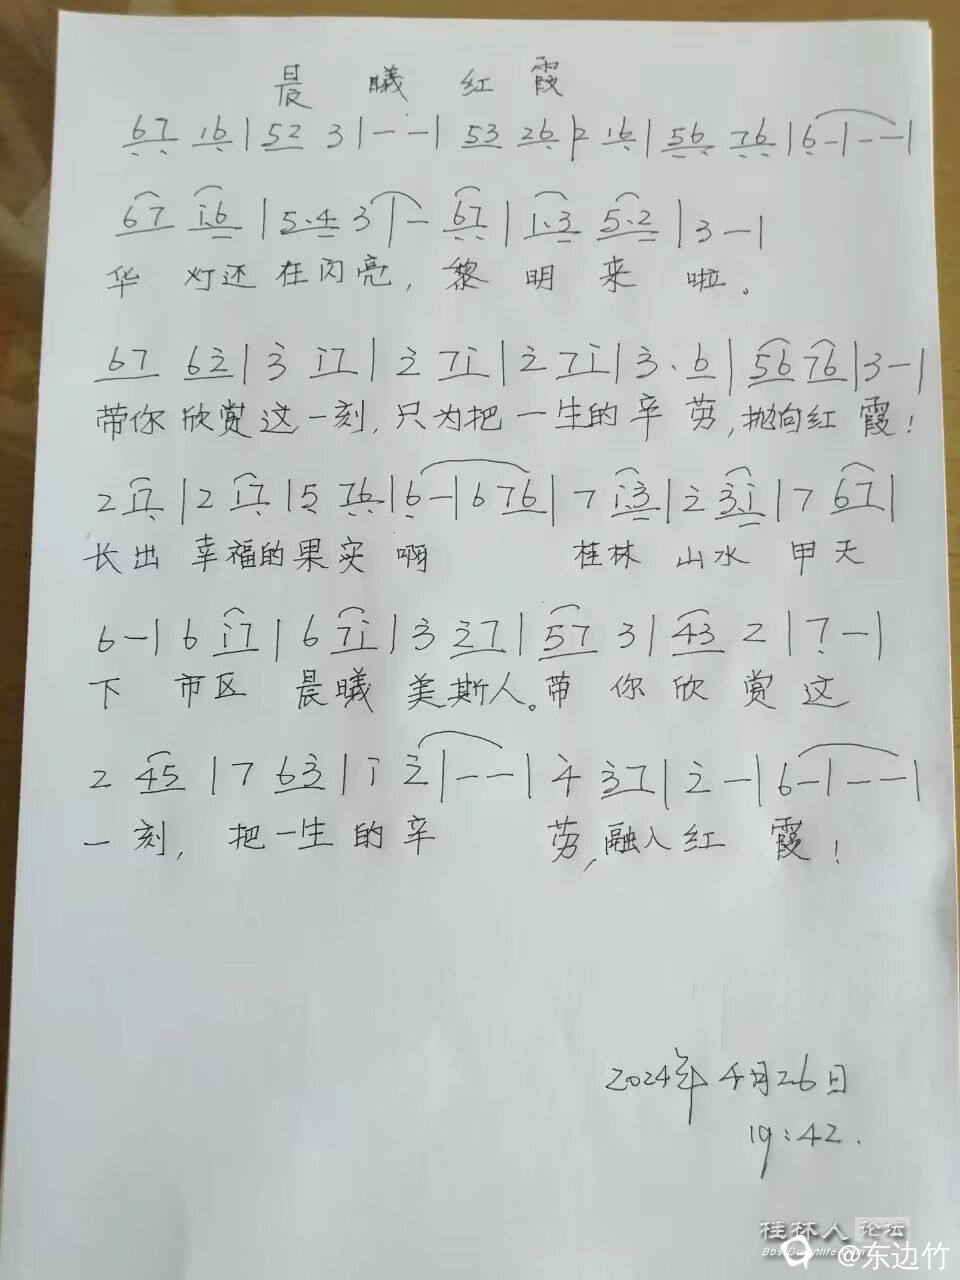 晨曦红霞
67 16 | 52 3 | - - | 53 26 | 2 16 | 56 76 | 6 - | - - |
67 i.6 | 5.4 3 | - 67 | 1.3 5.2 | 3 - |
华灯还在闪亮,黎明来啦。
67 62 | 3 i7 | 2 7i | 2 7i | 3. 6 | 56 76 | 3 - |
带你欣赏这一刻,只为把一生的辛劳,抛向红霞!
2 i7 | 2 i7 | 5 76 | 6 - | 6 76 | 7 i.3 | 2 3i | 7 67 |
长出幸福的果实啊 桂林山水甲天
6 - | 6 i7 | 6 7i | 3 27 | 57 3 | 43 2 | 7 - |
下市区晨曦美斯人。带你欣赏这
2 45 | 7 63 | i 2 | - - | 4 37 | 2 - | 6 - | - - |
一刻,把一生的辛劳,融入红霞!
2024年4月26日
19:42.
桂林人论坛
@东边竹